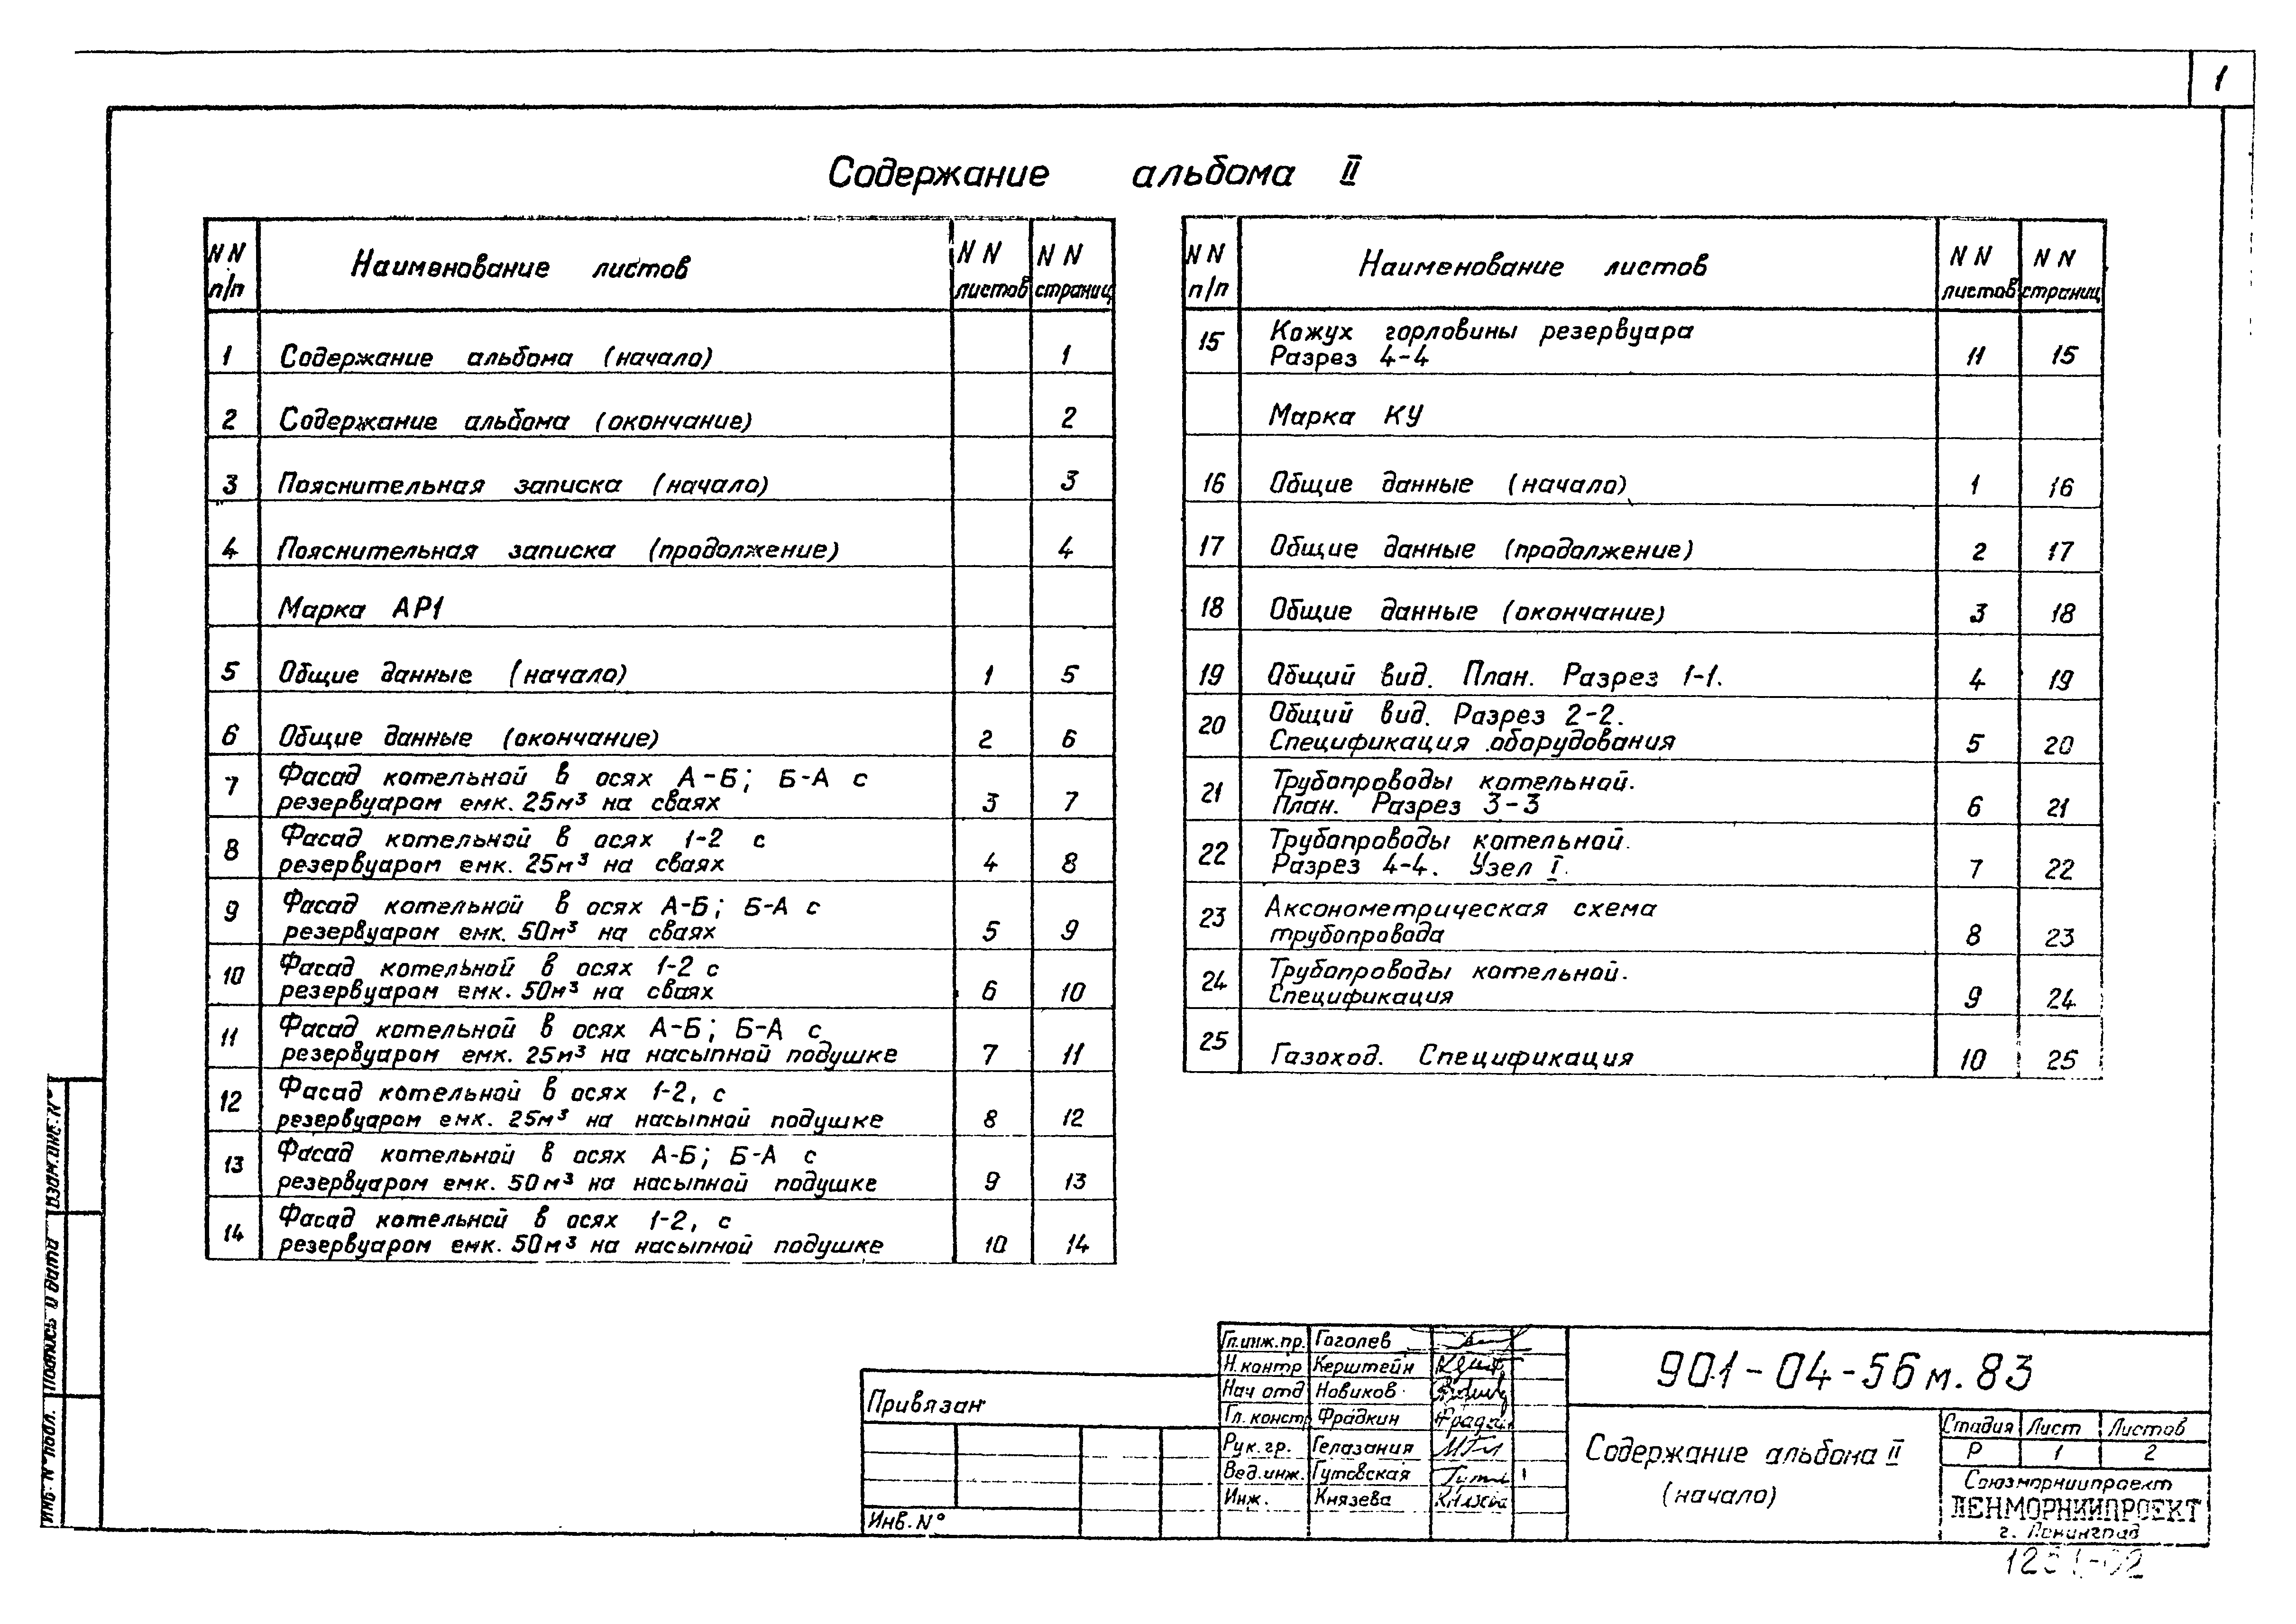 1
Содержание альбома II
NN п/п Наименование листов NN листов NN страниц
1 Содержание альбома (начало) 1
2 Содержание альбома (окончание) 2
3 Пояснительная записка (начало) 3
4 Пояснительная записка (продолжение) 4
Марка АР1
5 Общие данные (начало) 1 5
6 Общие данные (окончание) 2 6
7 Фасад котельной в осях А-Б; Б-А с
резервуаром емк. 25м³ на сваях 3 7
8 Фасад котельной в осях 1-2 с
резервуаром емк. 25м³ на сваях 4 8
9 Фасад котельной в осях А-Б; Б-А с
резервуаром емк. 50м³ на сваях 5 9
10 Фасад котельной в осях 1-2 с
резервуаром емк. 50м³ на сваях 6 10
11 Фасад котельной в осях А-Б; Б-А с
резервуаром емк. 25м³ на насыпной подушке 7 11
12 Фасад котельной в осях 1-2, с
резервуаром емк. 25м³ на насыпной подушке 8 12
13 Фасад котельной в осях А-Б; Б-А с
резервуаром емк. 50м³ на насыпной подушке 9 13
14 Фасад котельной в осях 1-2, с
резервуаром емк. 50м³ на насыпной подушке 10 14
NN п/п Наименование листов NN листов NN страниц
15 Кожух горловины резервуара
Разрез 4-4 11 15
Марка КУ
16 Общие данные (начало) 1 16
17 Общие данные (продолжение) 2 17
18 Общие данные (окончание) 3 18
19 Общий вид. План. Разрез 1-1. 4 19
20 Общий вид. Разрез 2-2.
Спецификация оборудования 5 20
21 Трубопроводы котельной.
План. Разрез 3-3 6 21
22 Трубопроводы котельной.
Разрез 4-4. Узел I. 7 22
23 Аксонометрическая схема
трубопровода 8 23
24 Трубопроводы котельной.
Спецификация 9 24
25 Газоход. Спецификация 10 25
Взам.инв.N°
Подпись и дата
Инв. N° подл.
Привязан
Инв. N°
Гл.инж.пр. Гоголев
Н.контр Керштейн
Нач отд Новиков
Гл. констр Фрадкин
Рук. гр. Гелазания
Вед.инж. Гутовская
Инж. Князева
901-04-56м.83
Содержание альбома II
(начало)
Стадия Лист Листов
Р 1 2
Союзморниипроект
ЛЕНМОРНИИПРОЕКТ
г. Ленинград